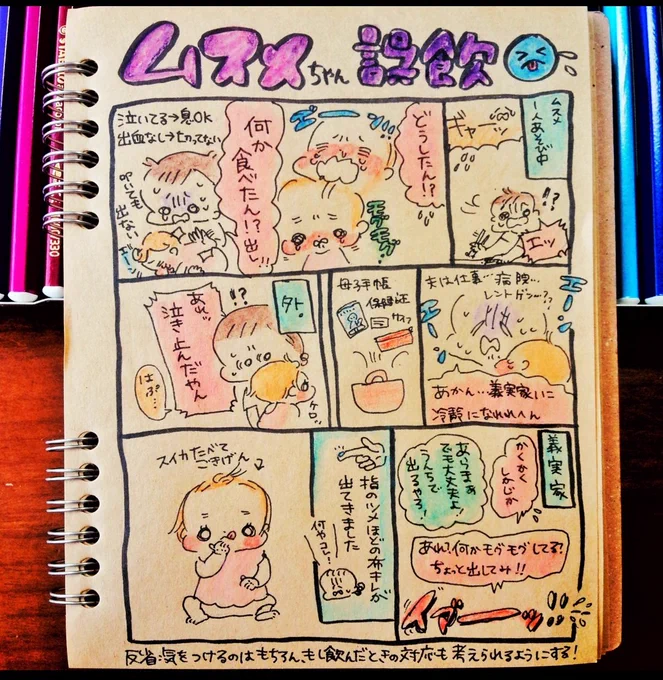 ムスメちゃん誤飲
ムスメ
一人あそび中
ギャー
!?
エッ
どうしたん!?
エーン
モグモグ
何か
食べたん!?出し
泣いてる→息OK
出血なし→切ってない
叩いても
出ない
エーン
夫は仕事…病院…
レントゲン…??
エーン
エーン
あかん…義実家いこ
冷静になれれへん
母子手帳
保険証
サイフ
外
!?
あれッ
泣き止んだやん
はぁ…
ケロッ
義実家
かくかく
しかじか
あらまぁ
でも大丈夫よ
うんちで
出るやろ!
あれ?何かモグモグしてる?
ちょっと出してみ!!
イヤーッ
指のツメほどの布キレが
出てきました
何やコレ!
スイカたべて
ごきげん
反省。気をつけるのはもちろん、もし飲んだときの対応も考えられるようにする!